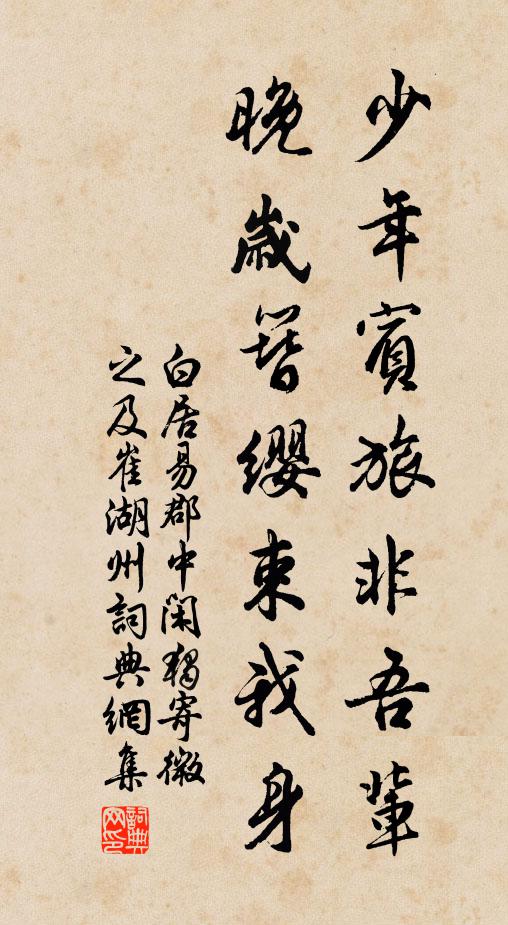 少年賓旅非吾輩
晚歲簪纓束我身
白居易郡中閑獨寄微
之及崔湖州詞典網集
詞典
网印